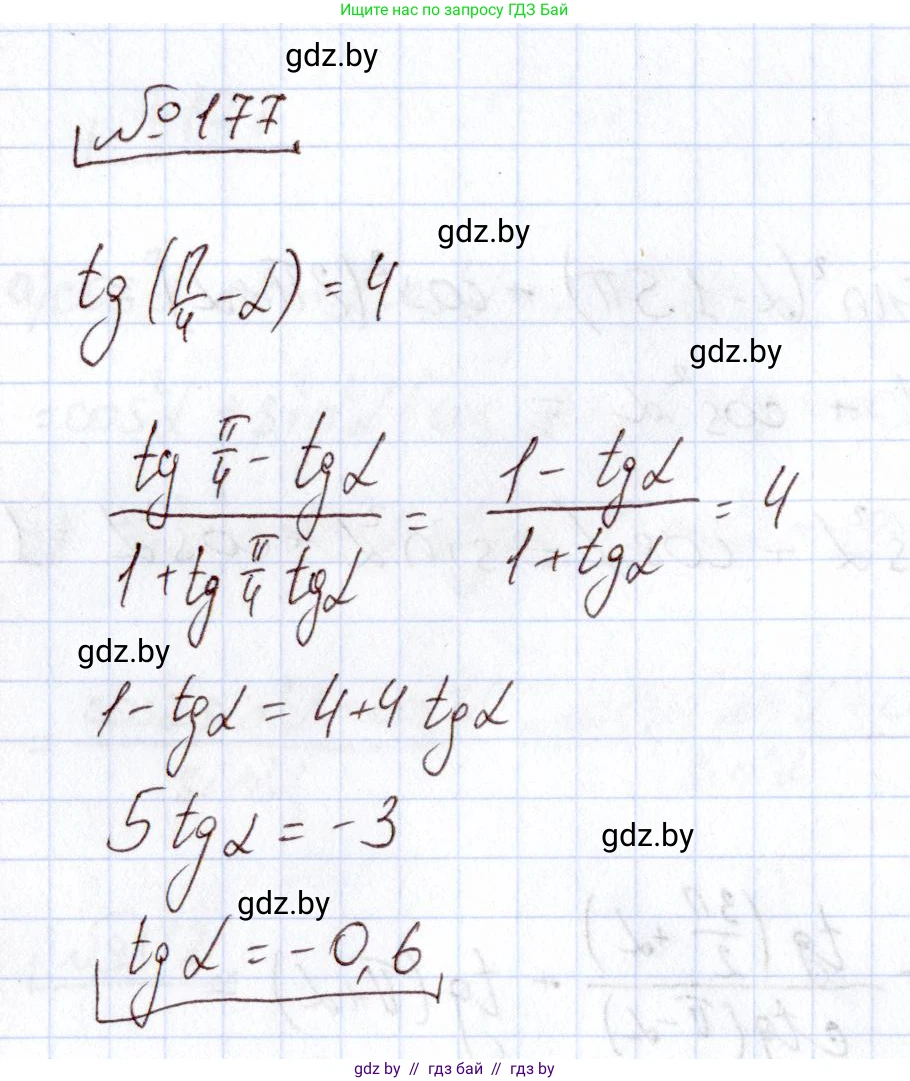 Ищите нас по запросу ГДЗ Бай
gdz.by
№ 177
gdz.by
tg(π/4 - α) = 4
gdz.by
(tg π/4 - tg α)/(1 + tg π/4 tg α) = (1 - tg α)/(1 + tg α) = 4
gdz.by
1 - tg α = 4 + 4 tg α
5 tg α = -3
gdz.by
gdz.by
tg α = -0,6
gdz.by // гдз бай // гдз by